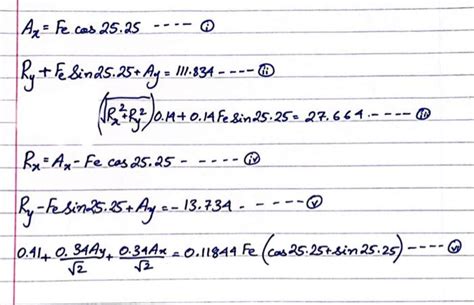 Ax = Fe cos 25.25 ---- (i)
Ry + Fe Sin 25.25 + Ay = 111.834 ---- (ii)
(√(Rx² + Ry²)) 0.14 + 0.14 Fe sin 25.25 = 27.664. ---- (iii)
Rx = Ax - Fe cos 25.25 - ---- (iv)
Ry - Fe sin 25.25 + Ay = - 13.734 - ---- (v)
0.41 + 0.34Ay/√2 + 0.34Ax/√2 = 0.11844 Fe (cos 25.25 + sin 25.25) ---- (vi)